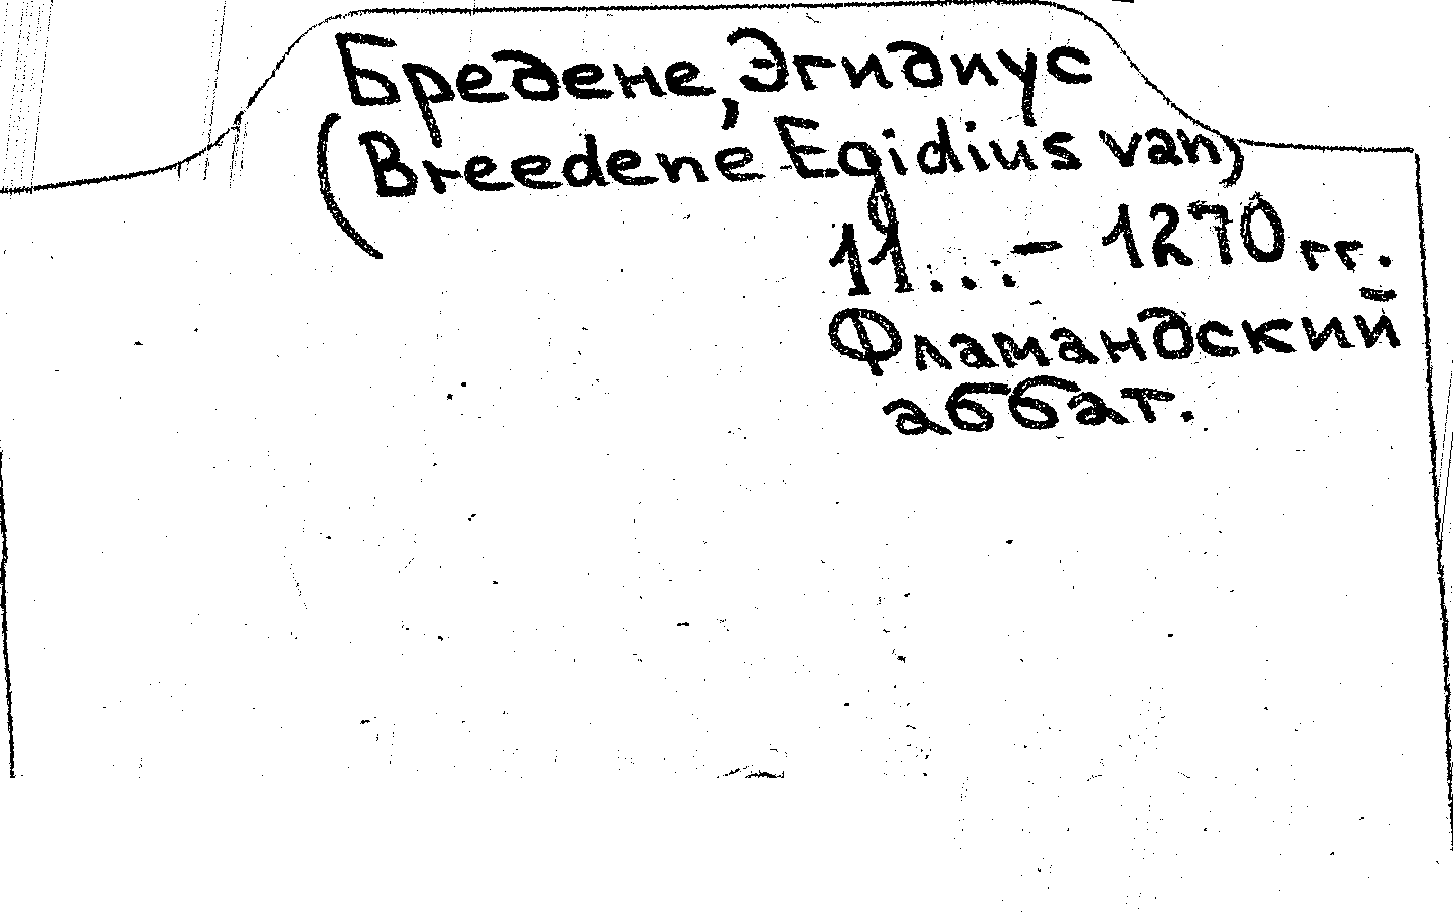 Бредене, Эгидиус
(Breedene Egidius van)
11...- 1270 гг.
Фламандский
аббат.